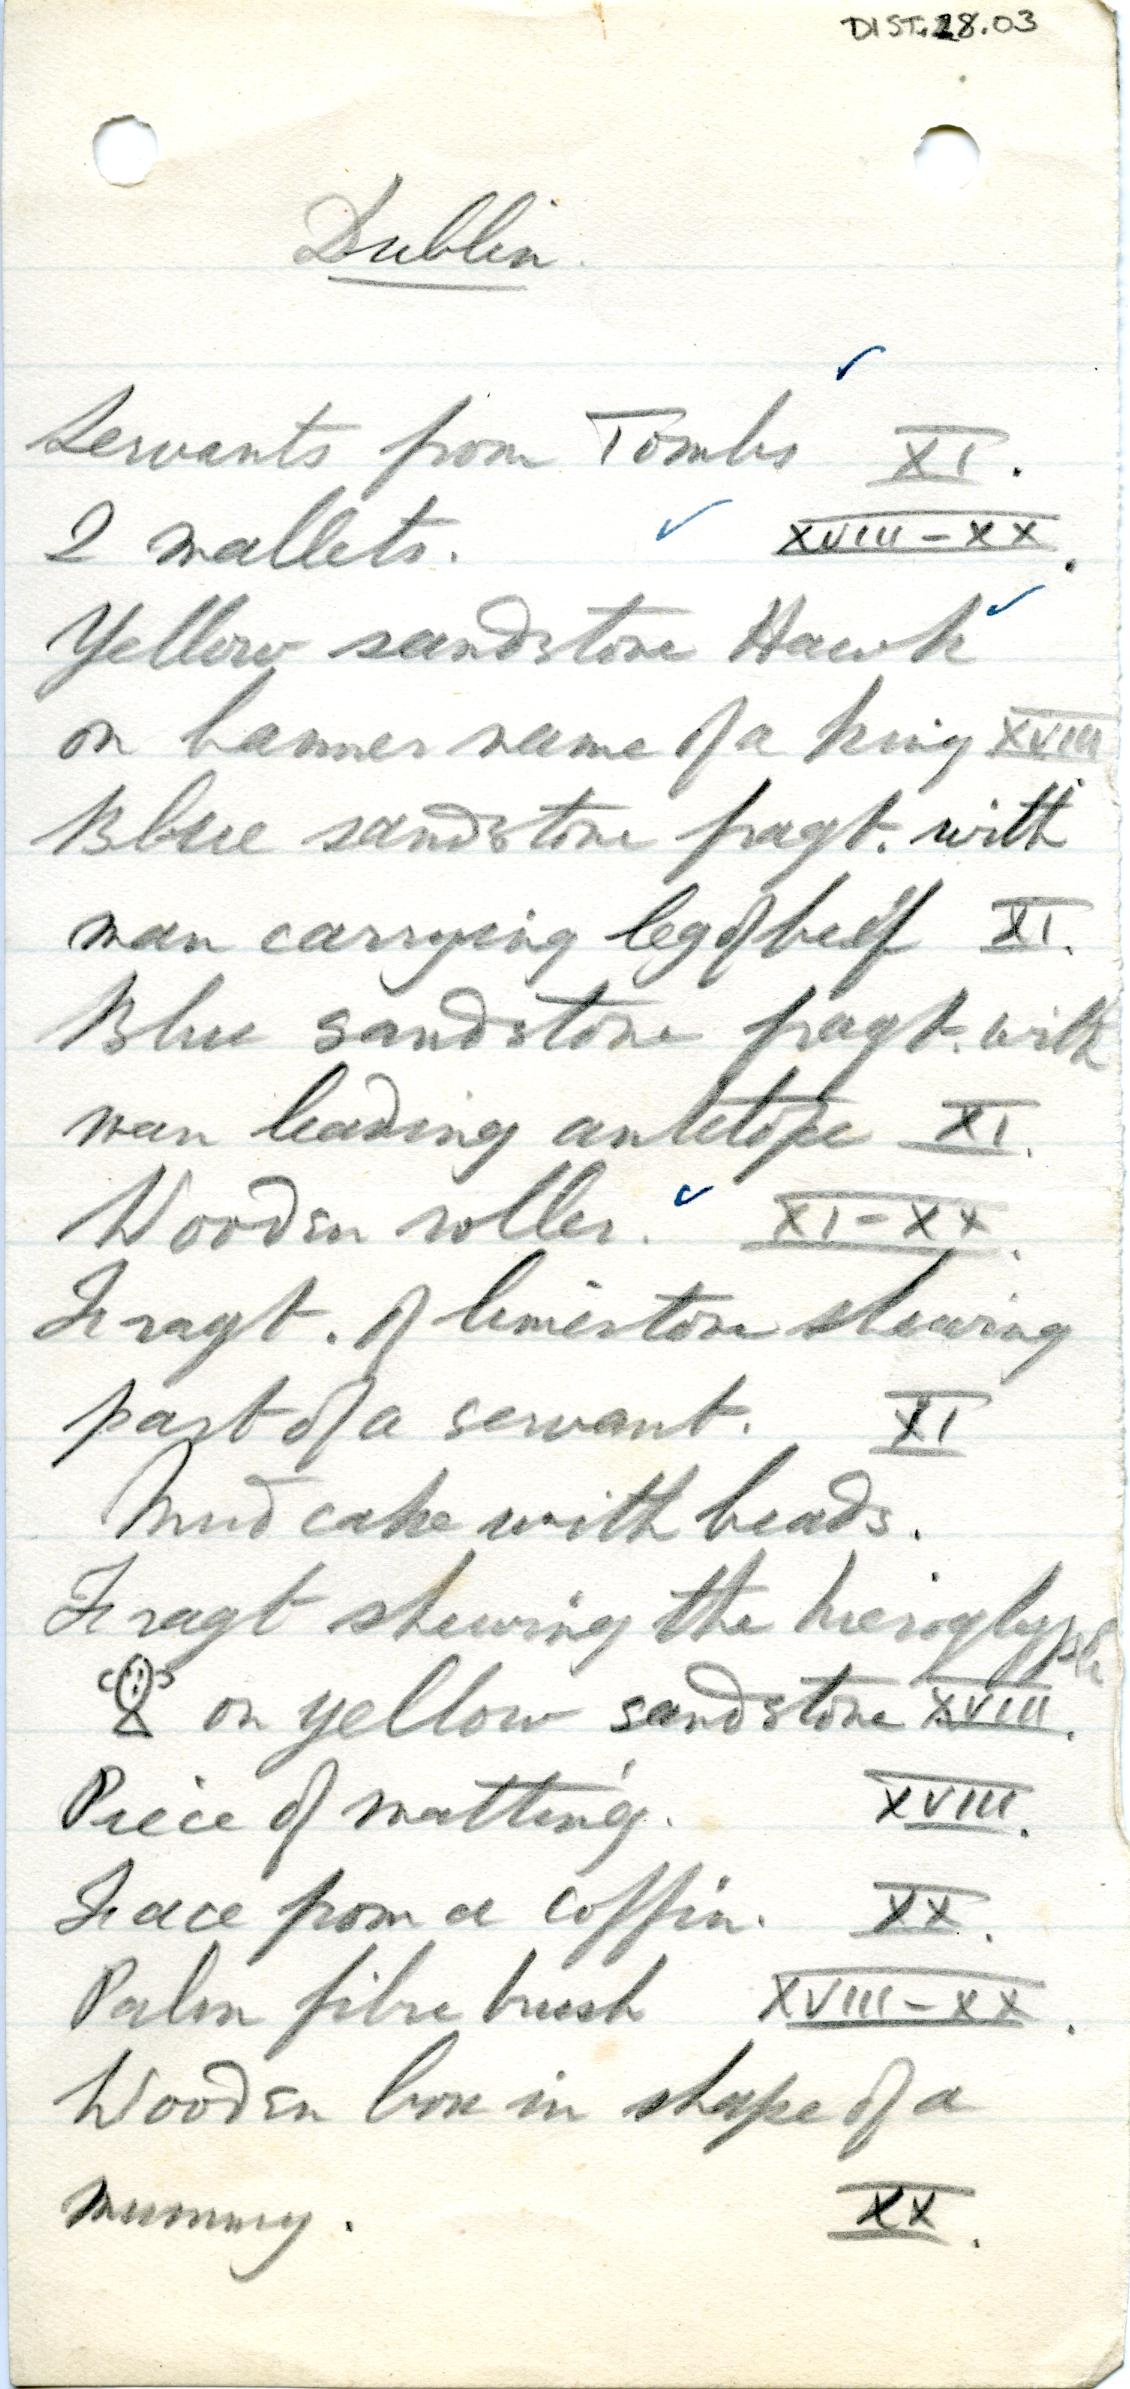 DIST.28.03
Dublin.
Servants from Tombs XI.
2 mallets. XVIII-XX.
Yellow sandstone Hawk
on banner name of a king XVIII
Blue sandstone fragt. with
man carrying leg of beef XI.
Blue sandstone fragt. with
man leading antelope XI.
Wooden roller. XI-XX.
Fragt. of limestone shewing
part of a servant. XI
Mud cake with beads.
Fragt shewing the hieroglyph
on yellow sandstone XVIII.
Piece of matting. XVIII.
Face from a coffin. XX.
Palm fibre brush XVIII-XX.
Wooden box in shape of a
mummy. XX.